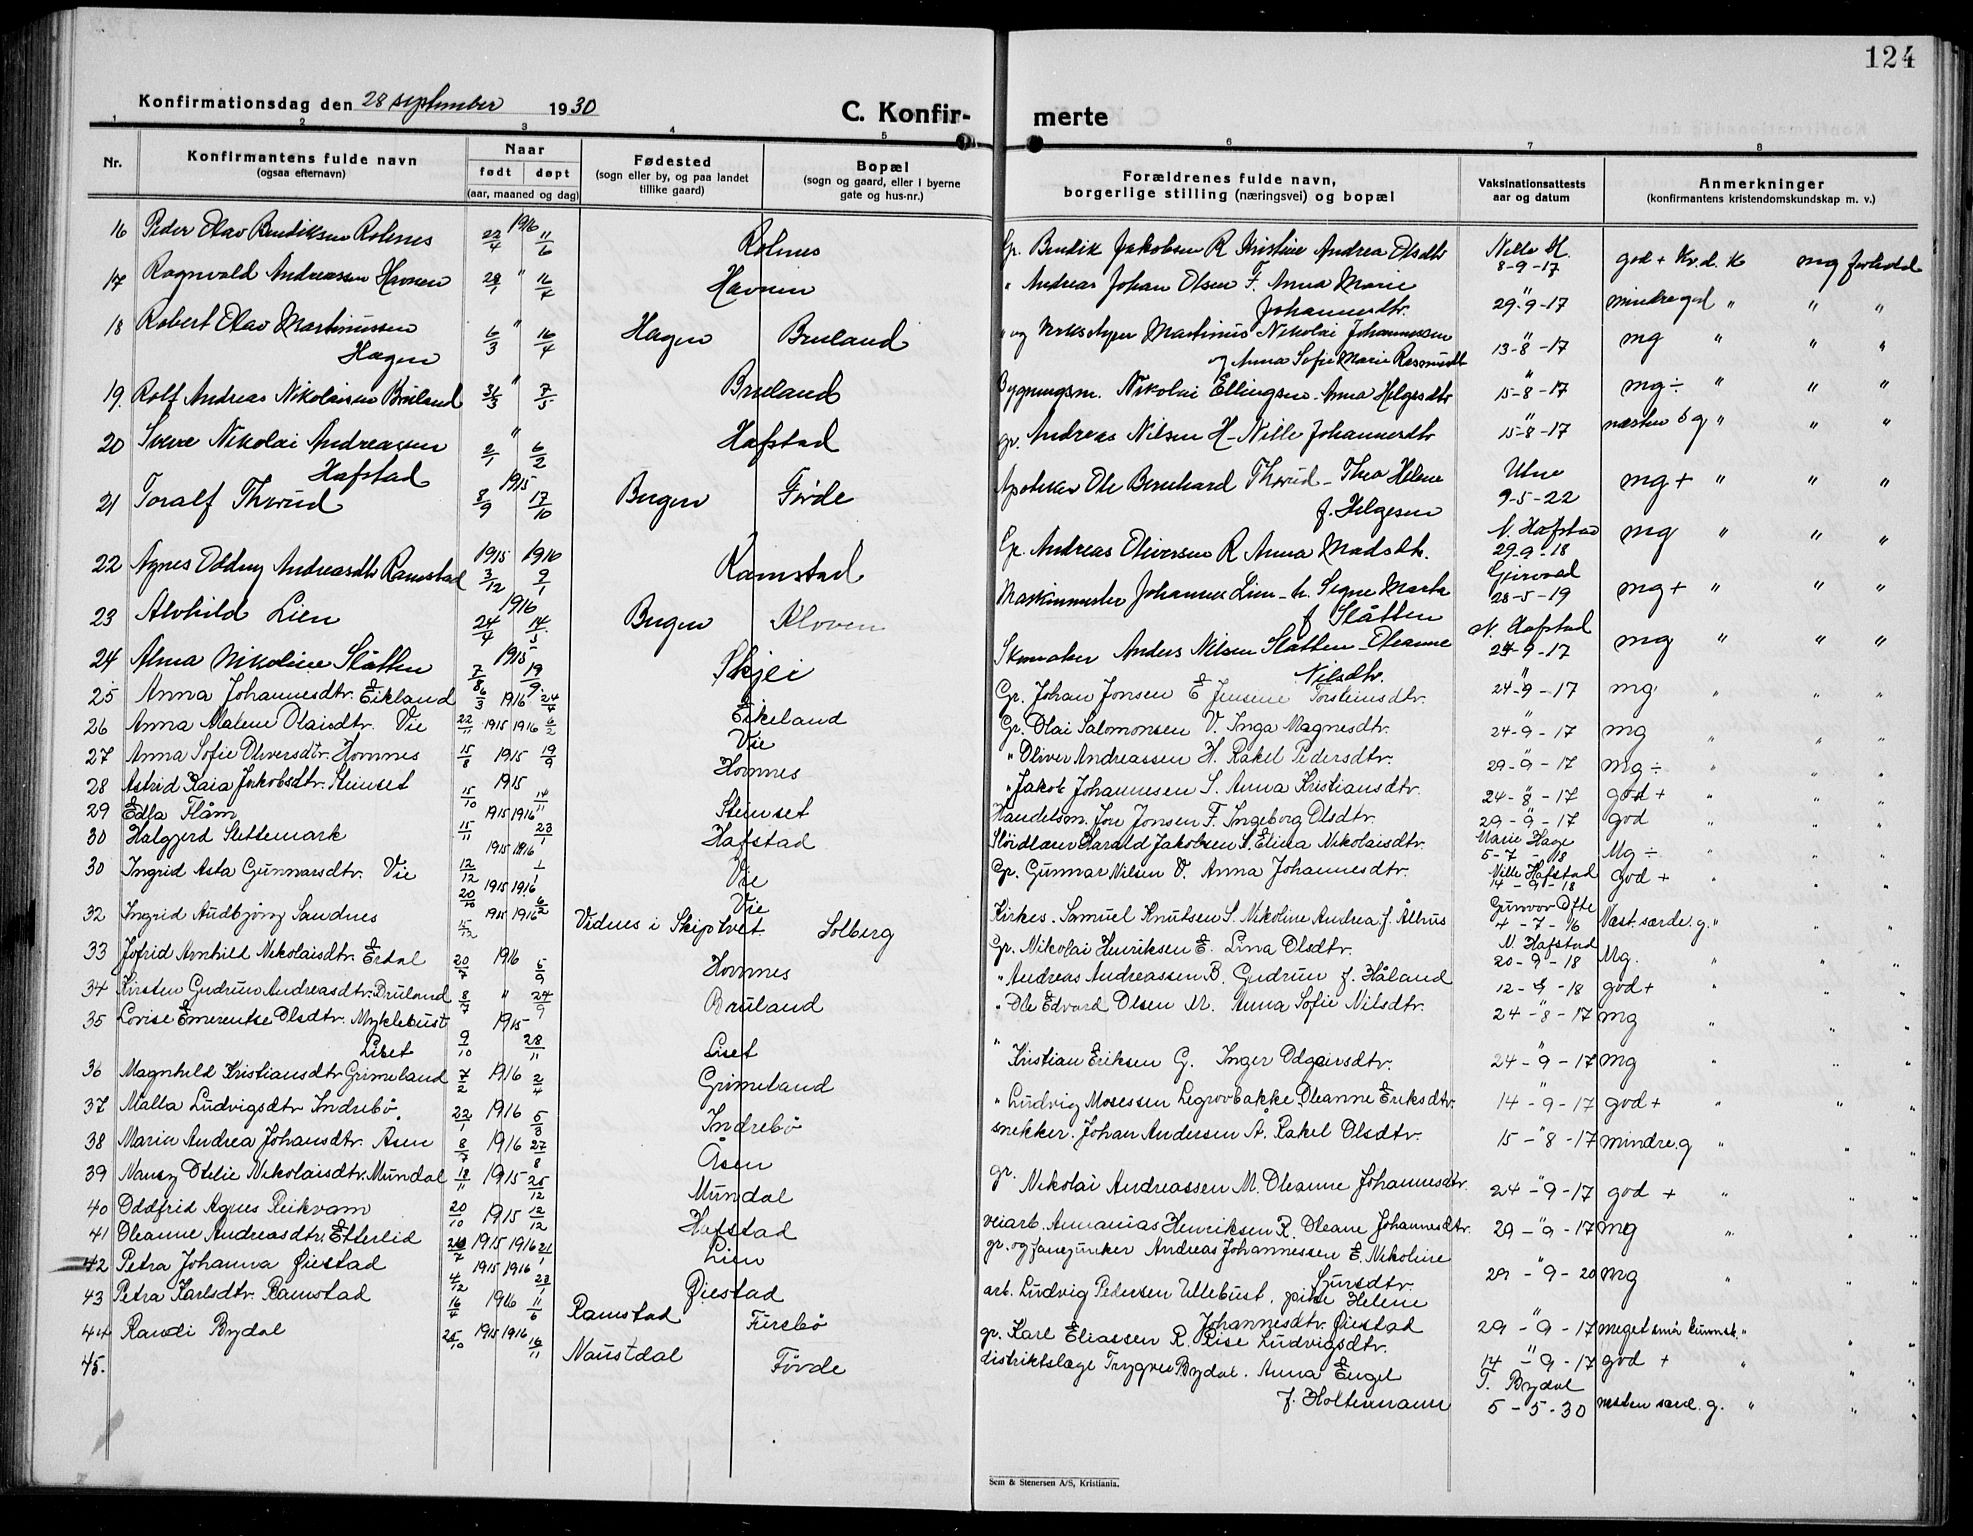 124
Konfirmationsdag den 28 september 1930
C. Konfir-
merte
1 2 3 4 5 6 7 8
Nr.
Konfirmantens fulde navn
(ogsaa efternavn)
Naar
født døpt
(aar, maaned og dag)
Fødested
(sogn eller by, og paa landet
tillike gaard)
Bopæl
(sogn og gaard, eller i byerne
gate og hus-nr.)
Forældrenes fulde navn,
borgerlige stilling (næringsvei) og bopæl
Vaksinationsattests
aar og datum
Anmerkninger
(konfirmantens kristendomskundskap m. v.)
16 Peder Olav Bendiksen Rolnes 22/4 1916 11/6 Rolnes Gr. Bendik Jakobsen R Kristine Andrea Olsdtr Nille H. 8-9-17 god + Kr.d. K mg forhold
17 Ragnvald Andreassen Havnen 28/1 " 16/4 Havnen " Andreas Johan Olsen F. Anna Marie
Johannesdtr. " 29-9-17 mindre god " " "
18 Robert Olav Martinussen
Hagen 6/3 " 16/4 Hagen Bruland " og Martinus Nikolai Johannessen
og Anna Sofie Marie Rasmusdtr " 13-8-17 mg " " "
19. Rolf Andreas Nikolaisen Bruland 31/3 " 7/5 Bruland Bygningsm. Nikolai Ellingsen. Anna Helgesdtr " 15-8-17 mg ÷ " " "
20 Sverre Nikolai Andreassen
Hafstad 2/1 " 6/2 Hafstad gr. Andreas Nilsen H - Nille Johannesdtr " 15-8-17 næsten s g " " "
21 Toralf Thorud 8/9 1915 17/10 Bergen Førde Apoteker Ole Bernhard Thorud - Thea Helene
f. Helgesen Utne 9-5-22 mg + " " "
22 Agnes Oddny Andreasdtr Ramstad 1915 3/12 1916 9/1 Ramstad Gr. Andreas Oliversen R Anna Madsdtr. N. Hafstad 29-9-18 mg " " "
23 Alvhild Lien 24/4 1916 14/5 Bergen Kloven Maskinmester Johannes Lien - h. Signe Marta
f Slåtten 28-5-19 mg + " " "
24 Alma Nikoline Slåtten 7/8 1915 19/9 Skjei Skomaker Anders Nilsen Slåtten - Oleanne
Nilsdtr. N. Hafstad 24-9-17 mg " " "
25 Anna Johannesdtr. Eikland 6/3 1916 24/4 Eikeland Gr. Johan Jonsen E Jensine Torsteinsdtr. " 24-9-17 mg " " "
26 Anna Malene Olaisdtr. Vie 22/11 1915 1916 6/2 Vie Gr. Olai Salomonsen V. Inga Magnesdtr. " 24-9-17 mg " " "
27 Anna Sofie Oliversdtr. Hornnes 15/8 1915 19/9 Hornnes " Oliver Andreassen H. Rakel Pedersdtr. 29-9-17 mg ÷ " " "
28 Astrid Kaia Jakobsdtr. Steinset 15/10 1915 14/11 Steinset " Jakob Johannesen S. Anna Kristiansdtr. 24-8-17 god + " " "
29 Edla Flåm 15/11 1915 1916 23/1 Hafstad Handelsm. Jon Jonsen F. Ingeborg Olsdtr. 29-9-17 god " " "
30 Halgjerd Slettemark 12/12 1915 1916 1/1 Vie Sløidlærer Harald Jakobsen S. Elina Nikolaisdtr. Marie Hage 5-7-18 Mg ÷ " " "
30 Ingrid Asta Gunnarsdtr. Vie 20/10 1915 1916 6/2 Vie Gr. Gunnar Nilsen V. Anna Johannesdtr. Nille Hafstad 14-9-18 god + " " "
32 Ingrid Audbjørg Sandnes 15/12 1915 1916 Vidnes i Skiptvet Solberg Kirkes. Samuel Knutsen S. Nikoline Andrea f. Ålhus Gunvor Ofte 4-7-16 Næst. særde. g. " " "
33 Jofrid Arnhild Nikolaisdtr. Erdal 20/7 1916 5/9 Hornnes Gr. Nikolai Henriksen E. Lina Olsdtr. N. Hafstad 20-9-18 Mg. " " "
34 Kirsten Gudrun Andreasdtr. Bruland 8/7 " 24/9 Bruland " Andreas Andreassen B. Gudrun f. Håland 12-9-18 god + " " "
35 Lovise Emerentse Olsdtr. Myklebust
Liset 9/10 1915 28/11 Liset " Ole Edvard Olsen M. Anna Sofie Nilsdtr. 24-8-17 mg " " "
36 Magnhild Kristiansdtr Grimeland 7/2 1916 2/4 Grimeland " Kristian Eriksen G. Inger Odgeirsdtr. " 24-9-17 mg " " "
37 Malla Ludvigsdtr Indrebø. 22/1 1916 5/3 Indrebø " Ludvig Mosessen Legrovbakke Oleanne Eriksdtr. " 14-9-17 god + " " "
38 Marie Andrea Johansdtr. Åsen 8/7 1916 27/8 Åsen snekker. Johan Andersen Å. Rakel Olsdtr. 15-8-17 mindre g " " "
39 Nancy Otelie Nikolaisdtr. Mundal 18/11 1915 25/12 Mundal gr. Nikolai Andreassen M. Oleanne Johannesdtr. 24-9-17 god + " " "
40 Oddfrid Agnes Reikvam 20/10 1915 12/12 Hafstad veiarb. Annanias Henriksen R. Oleane Johannesdtr. 29-9-17 mg " " "
41 Oleanne Andreasdtr. Etterlid 26/7 1915 1916 21/1 Lien gr. og fanejunker Andreas Johannessen E. Nikoline
Sjursdtr. 29-9-20 mg " " "
42 Petra Johanna Øiestad 4/12 1915 1916 23/1 Øiestad arb. Ludvig Pedersen Ullebust. pike Helene
Johannesdtr. Øiestad 29-9-17 meget små kunnsk. " " "
43 Petra Karlsdtr. Ramstad 16/4 1916 11/6 Ramstad Furebø gr. Karl Eliassen R. Lise Ludvigsdtr. 14-9-17 god + " " "
44 Randi Bydal 25/10 1915 1916 19/11 Naustdal Førde distriktslæge Trygve Bydal. Anna Engel
f. Holtermann T. Bydal 5-5-30 nesten særd. g. " " "
45.
Sem & Stenersen A/S, Kristiania.